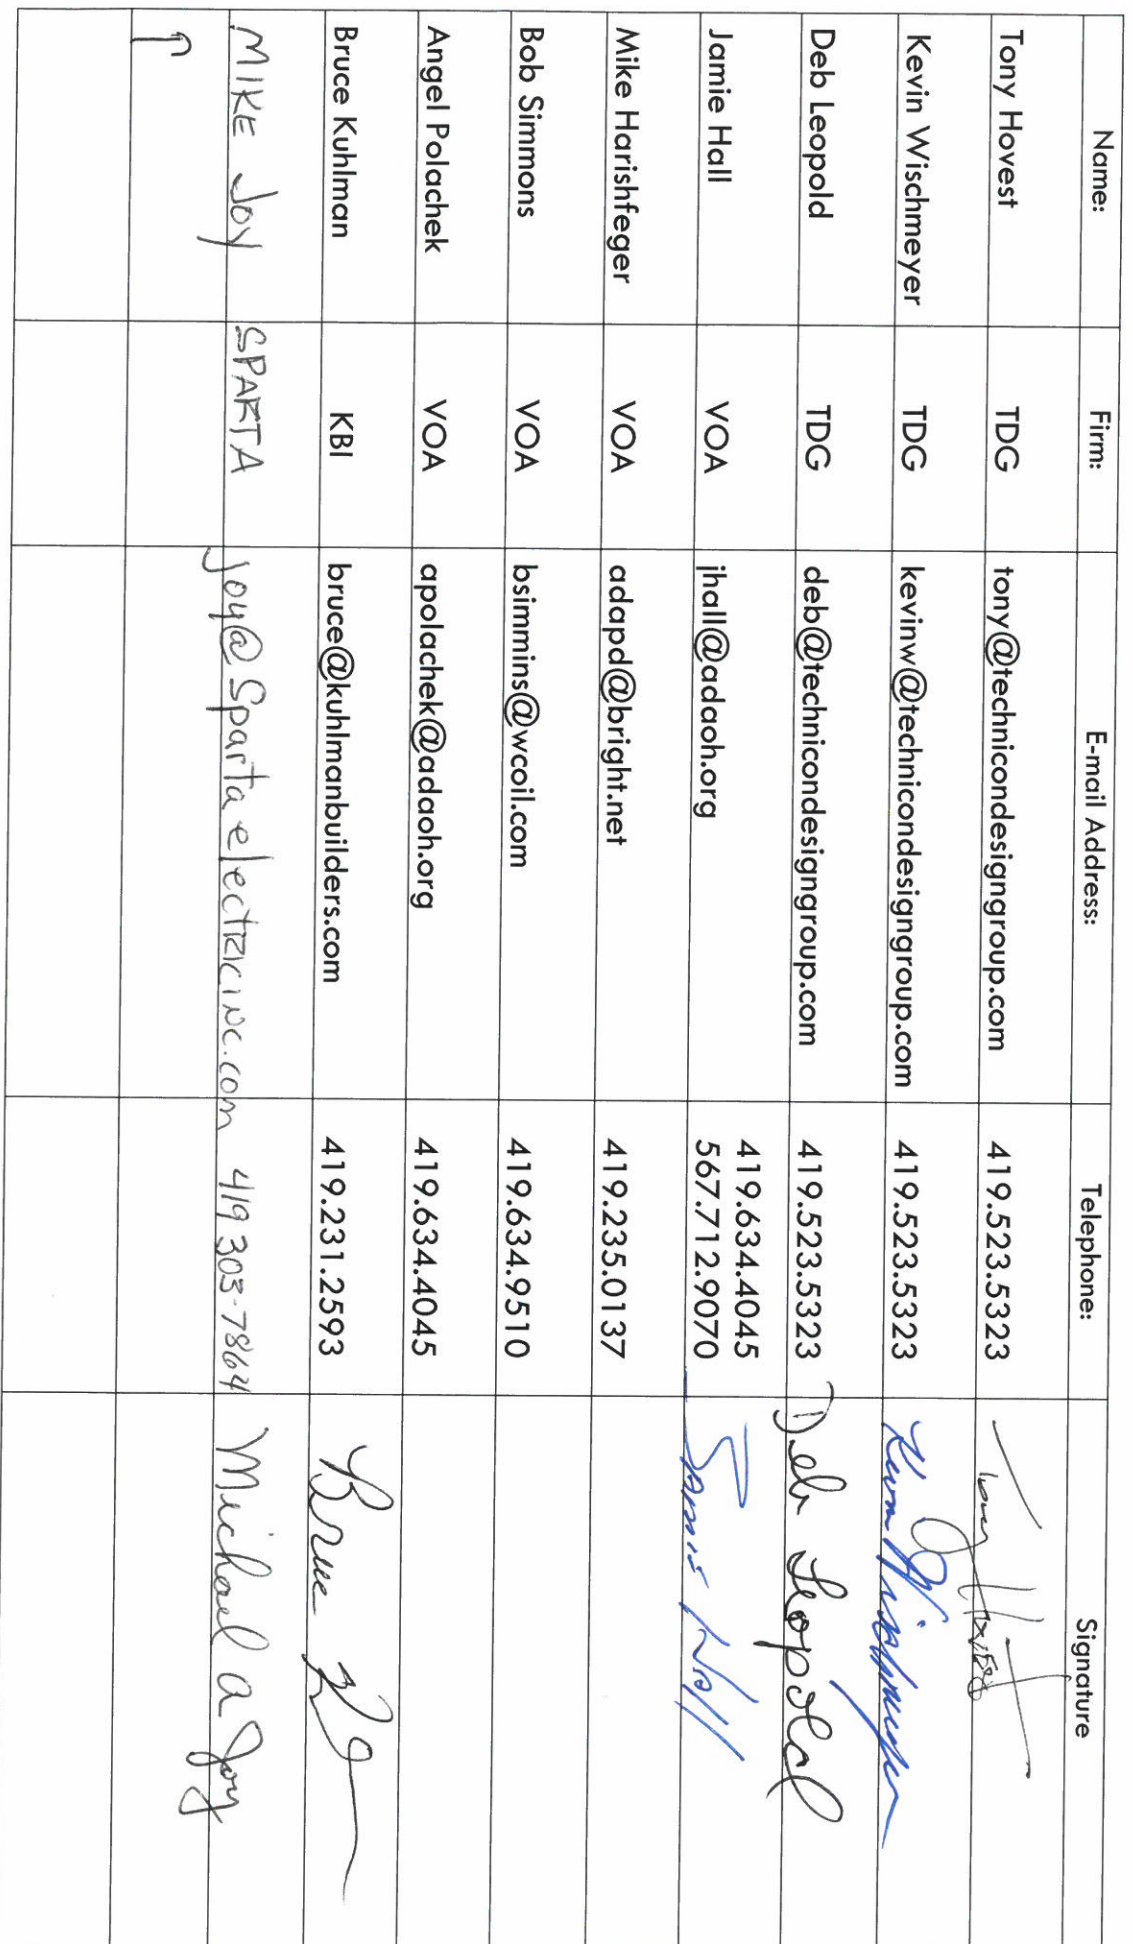 Name: Firm: E-mail Address: Telephone: Signature
Tony Hovest TDG tony@technicondesigngroup.com 419.523.5323 Tony Hovest
Kevin Wischmeyer TDG kevinw@technicondesigngroup.com 419.523.5323 Kevin Wischmeyer
Deb Leopold TDG deb@technicondesigngroup.com 419.523.5323 Deb Leopold
Jamie Hall VOA jhall@adaoh.org 419.634.4045
567.712.9070 Jamie Hall
Mike Harishfeger VOA adapd@bright.net 419.235.0137
Bob Simmons VOA bsimmins@wcoil.com 419.634.9510
Angel Polachek VOA apolachek@adaoh.org 419.634.4045
Bruce Kuhlman KBI bruce@kuhlmanbuilders.com 419.231.2593 Bruce K
MIKE JOY SPARTA joy@Spartaelectricinc.com 419 303-7864 Michael a Joy